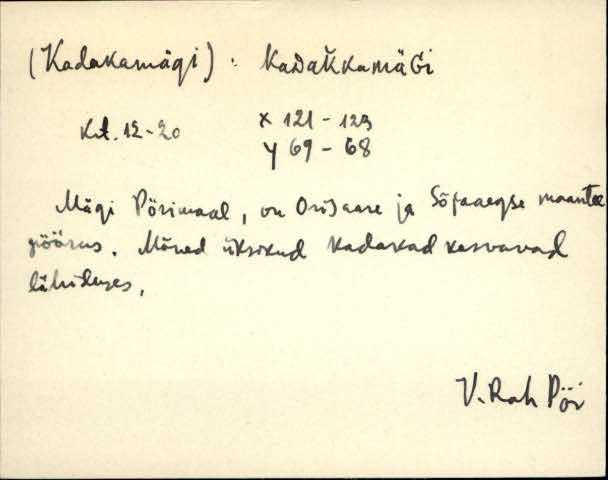 (Kadakamägi) : KaDaKkamäGi
Krt. 12-20 x 121 - 123
y 69 - 68
Mägi Pörimaal, on Orisaare ja Sõjaaegse maantee
pöörus. Mõned üksikud kadakad kasvavad
läheduses,
V. Rah Pöi